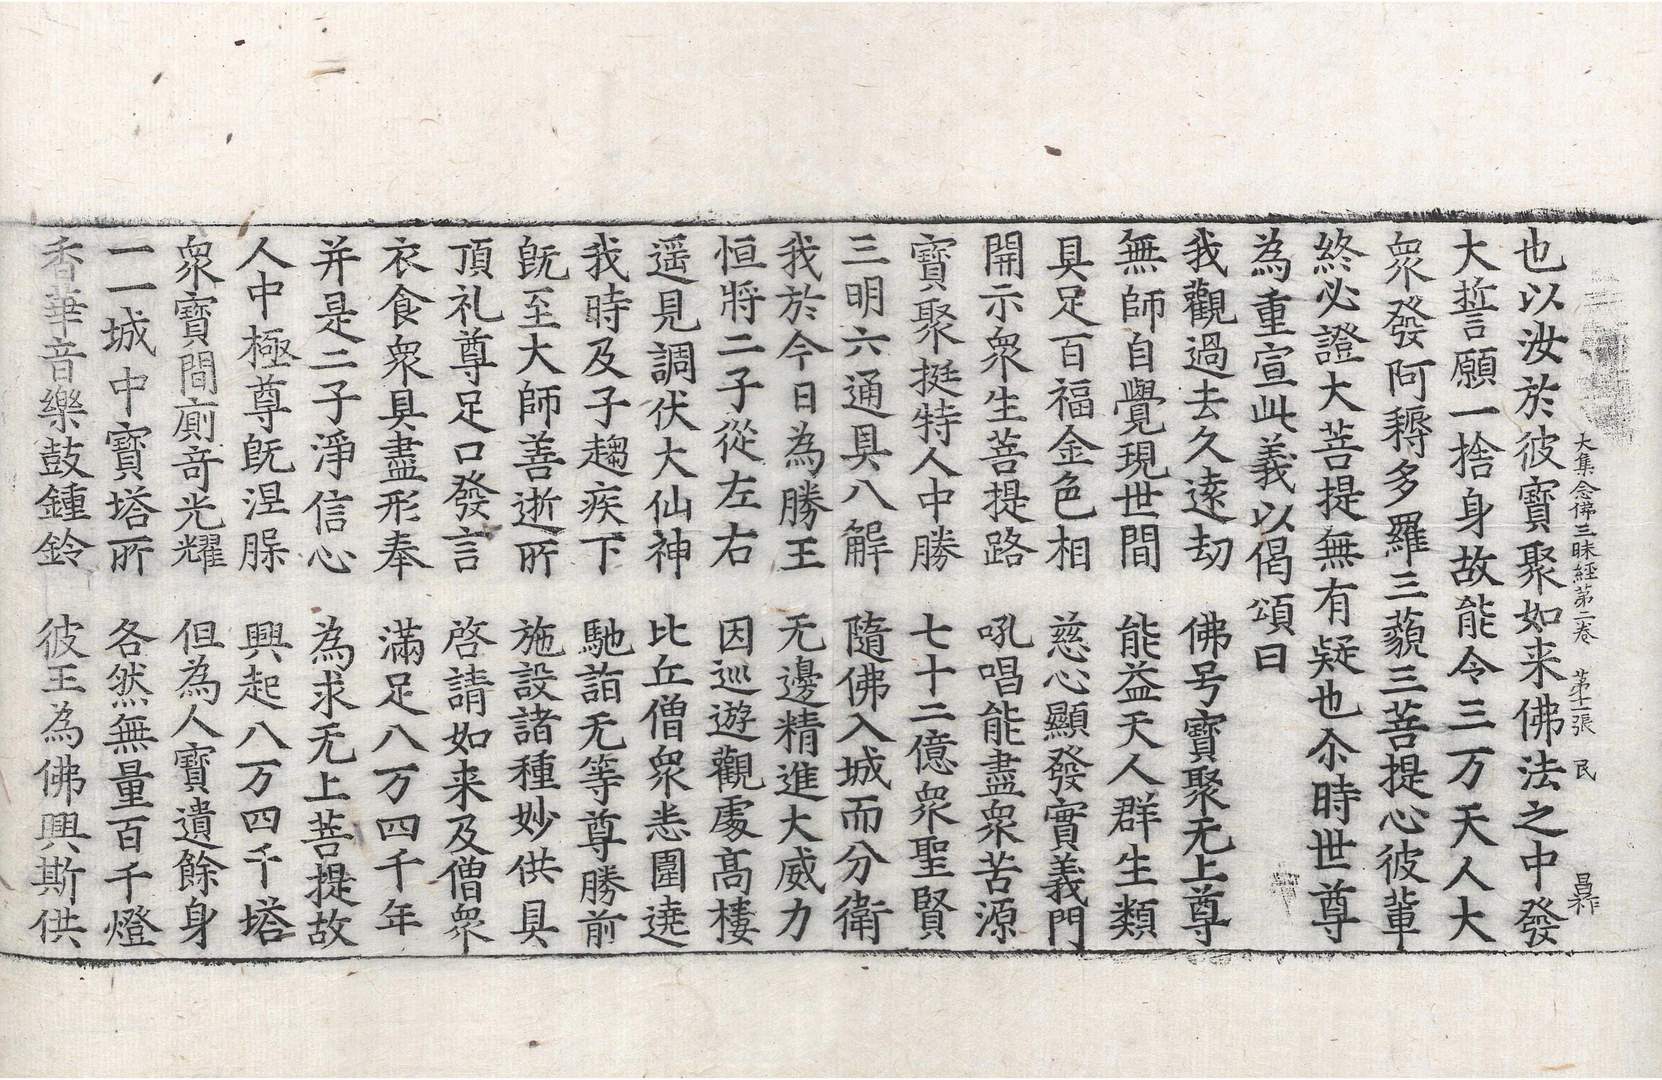 大集念佛三昧經第二卷 第十二張 民 昌作
也以汝於彼寶聚如来佛法之中發
大誓願一捨身故能令三万天人大
衆發阿耨多羅三藐三菩提心彼輩
終必證大菩提無有疑也尒時世尊
為重宣此義以偈頌曰
我觀過去久遠劫 佛号寶聚无上尊
無師自覺現世間 能益天人群生類
具足百福金色相 慈心顯發實義門
開示衆生菩提路 吼唱能盡衆苦源
寶聚挺特人中勝 七十二億衆聖賢
三明六通具八解 隨佛入城而分衛
我於今日為勝王 无邊精進大威力
恒將二子從左右 因巡遊觀處高樓
遥見調伏大仙神 比丘僧衆恚圍遶
我時及子趨疾下 馳詣无等尊勝前
旣至大師善逝所 施設諸種妙供具
頂礼尊足口發言 啓請如来及僧衆
衣食衆具盡形奉 滿足八万四千年
并是二子淨信心 為求无上菩提故
人中極尊旣涅䏶 興起八万四千塔
衆寶間廁竒光耀 但為人寶遺餘身
一一城中寶塔所 各然無量百千燈
香華音樂鼓鍾鈴 彼王為佛興斯供